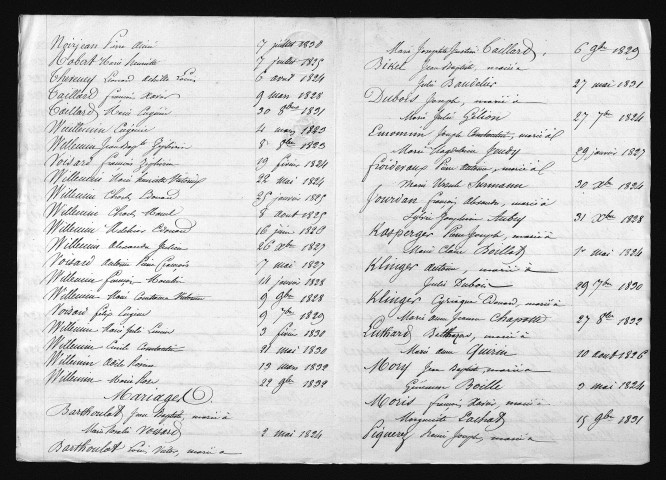 Noirjean Pierre Aimé 7 juillet 1830
Robert Marie 7 juillet 1825
Thevenez Léonard Achille 6 avril 1824
Taillard François Xavier 9 mars 1828
Taillard Marie Eugénie 30 8bre 1831
Wuillemin Eugène 4 mars 1823
Willemin Jean Bapte Zéphirin 8 8bre 1823
Voisard François Zéphirin 19 février 1824
Willemin Marie Henriette 22 mai 1824
Willemin Charles Edouard 25 janvier 1825
Willemin Charles 8 aout 1825
Willemin Melchior Edouard 16 juin 1829
Willemin Alexandre Julien 26 Xbre 1827
Voisard Antoine Pierre François 7 mai 1827
Willemin François 14 janvier 1828
Willemin Marie Constance 9 9bre 1828
Voisard Eugène 9 7bre 1829
Willemin Marie Julie 3 février 1830
Willemin Emile Constantin 21 mai 1830
Willemin Adèle 13 mars 1832
Willemin Marie Rose 22 9bre 1832
Mariages
Barthoulot Jean Baptiste, marié à
Marie Voisard 2 mai 1824
Barthoulot Louis Victor, marié à
Marie Josephte Taillard, 6 9bre 1829
Jean Baptiste, marié à
Julie Baudelier 27 mai 1831
Dubois Joseph, marié à
Marie Julie 27 7bre 1824
Joseph Constantin, marié à
Marie Magdeleine 29 janvier 1827
Froidevaux Pierre Antoine, marié à
Marie Ursule 30 Xbre 1824
Jourdan François Alexandre, marié à
Joséphine Aubry 31 Xbre 1828
Kasperger Pierre Joseph, marié à
Marie Claire Boillat 1er mai 1824
Klinger Antoine, marié à
Julie Dubois 29 7bre 1830
Klinger Cyriaque Edouard, marié à
Marie Anne Jeanne Chapatte 27 8bre 1832
Luthard Balthazar, marié à
Marie Anne 10 aout 1826
Mory Jean Baptiste, marié à
Généreuse Boille 3 mai 1824
Moris François Xavier, marié à
Marguerite Lachat 15 9bre 1831
Piquerez Joseph, marié à